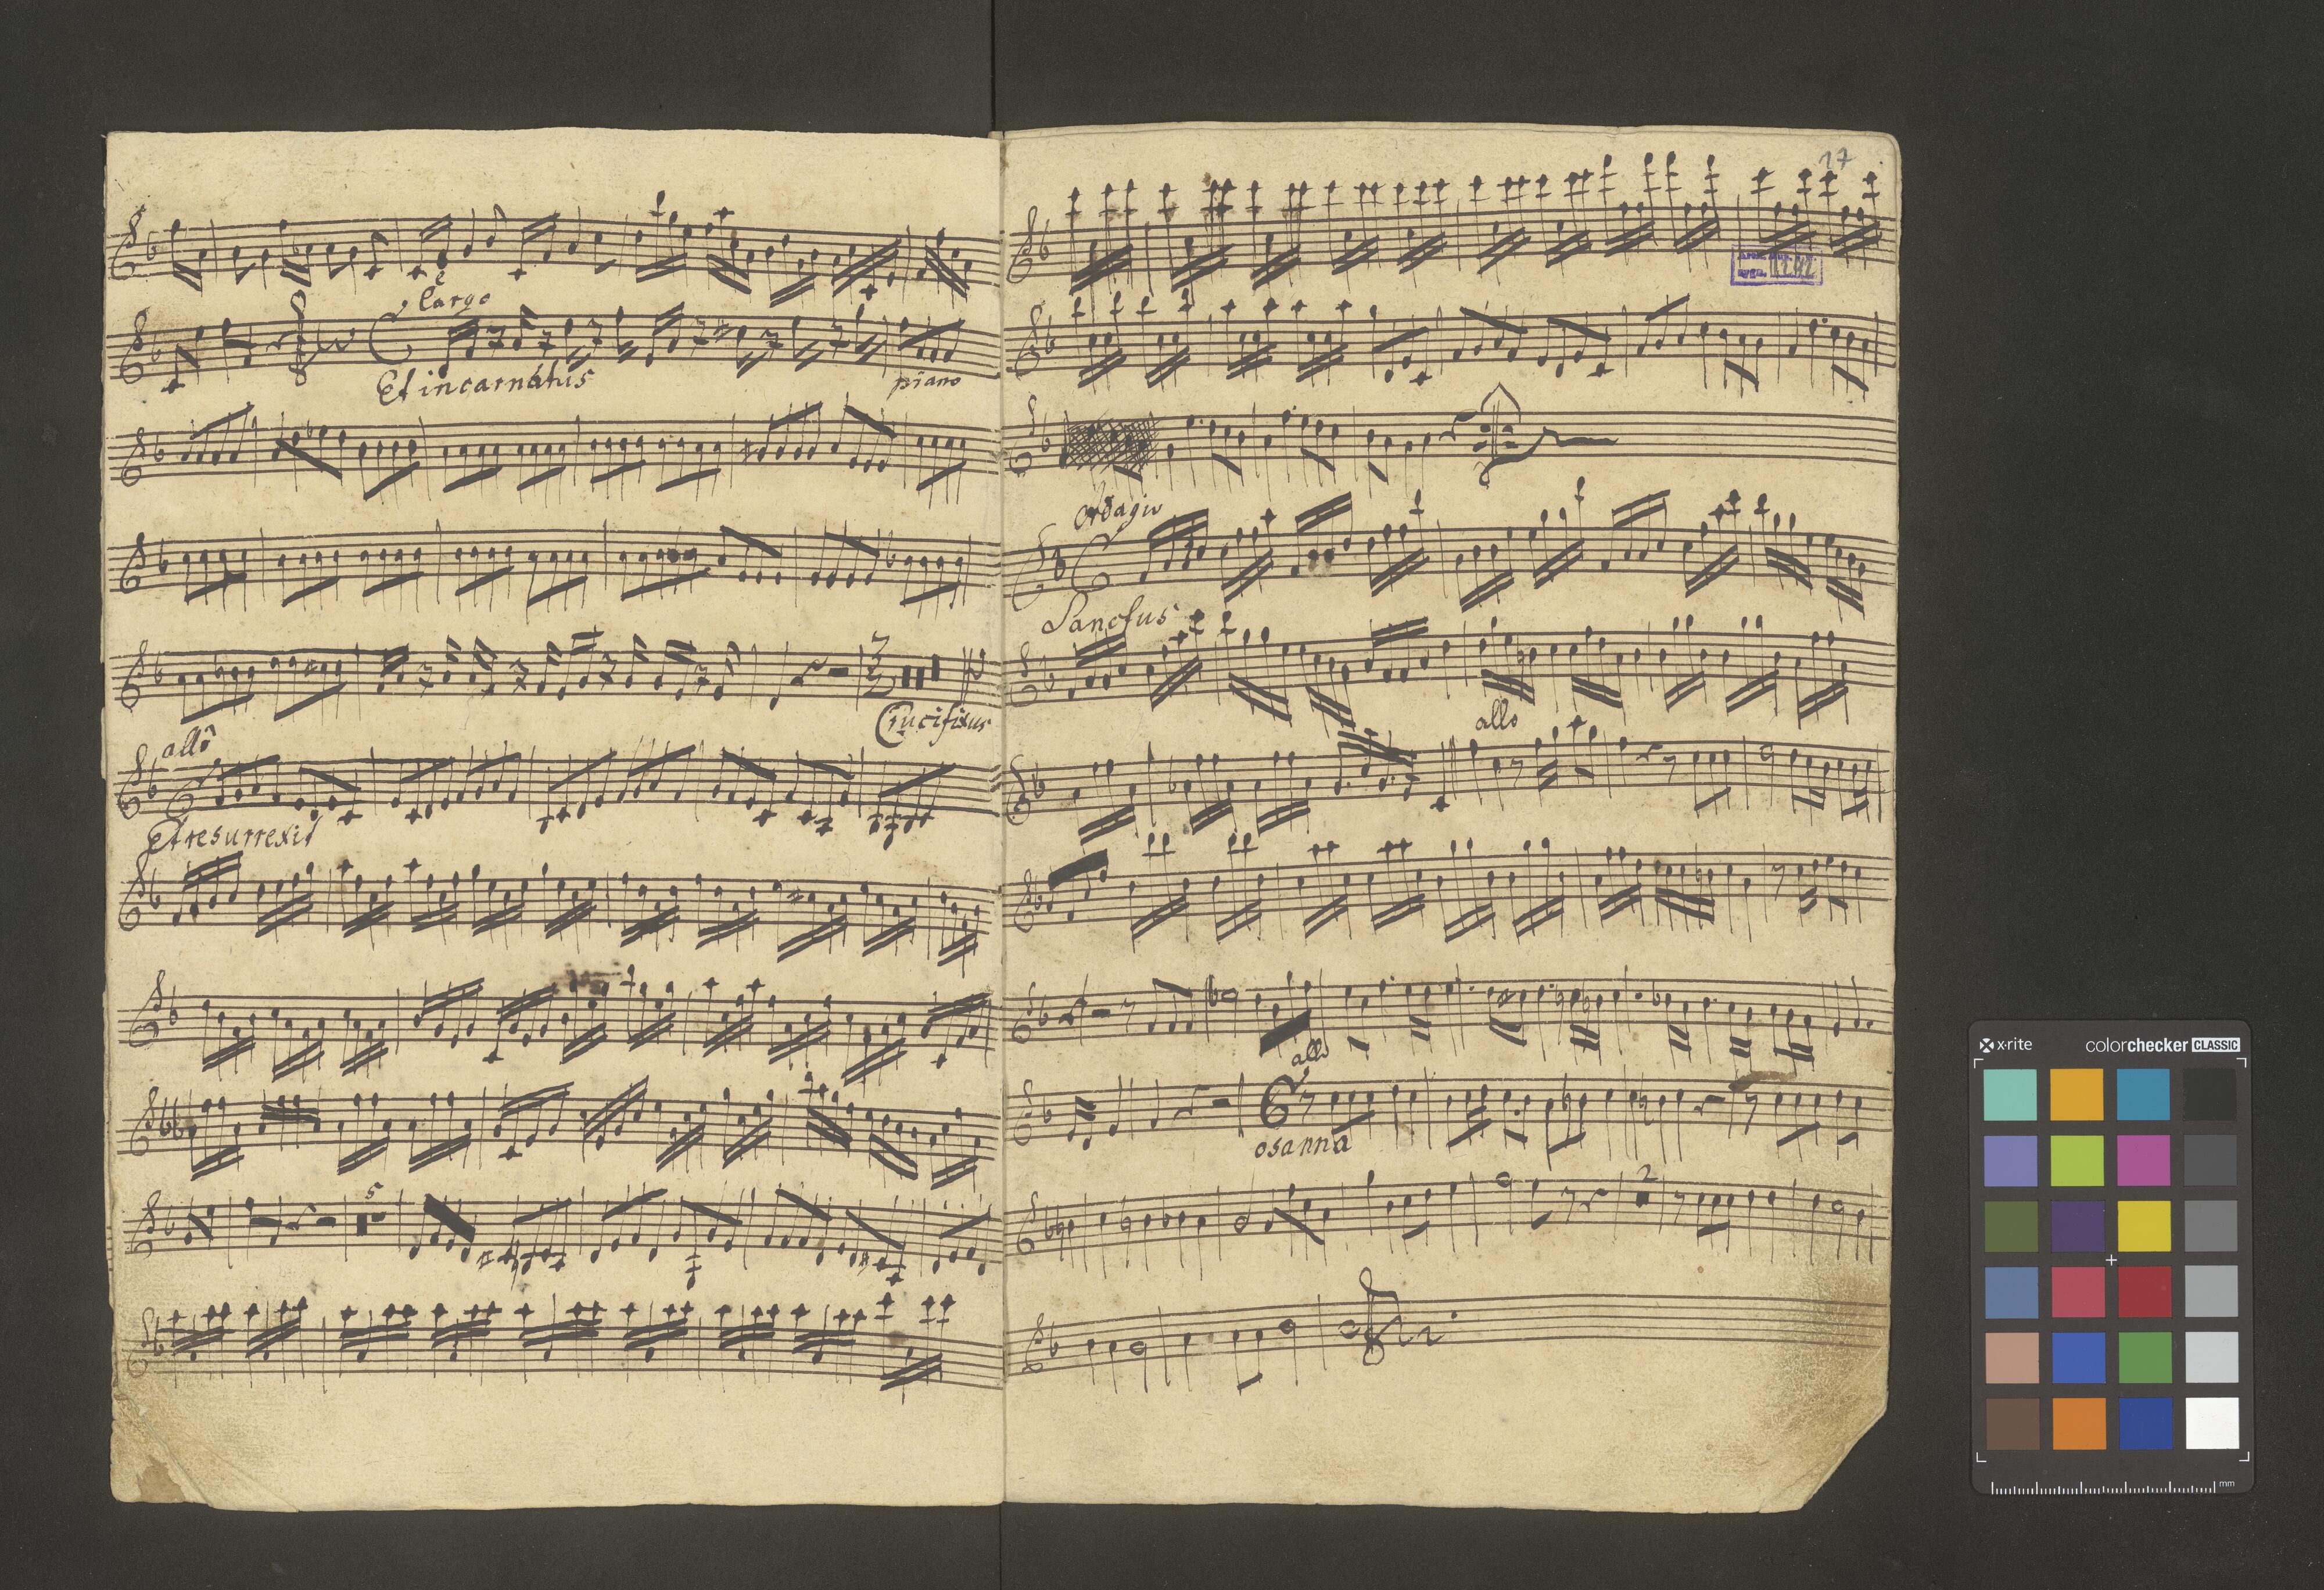 largo
Et incarnatus piano
Crucifixus
allo
Et resurrexit
5
17
Adagio
Sanctus
allo
allo
osanna
2
x-rite colorchecker CLASSIC
mm